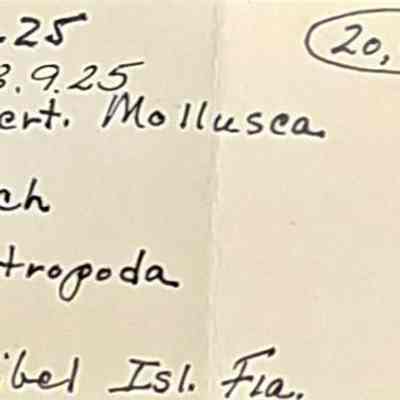 .25
20,
3.9.25
ert. Mollusca
ch
tropoda
ibel Isl. Fla.